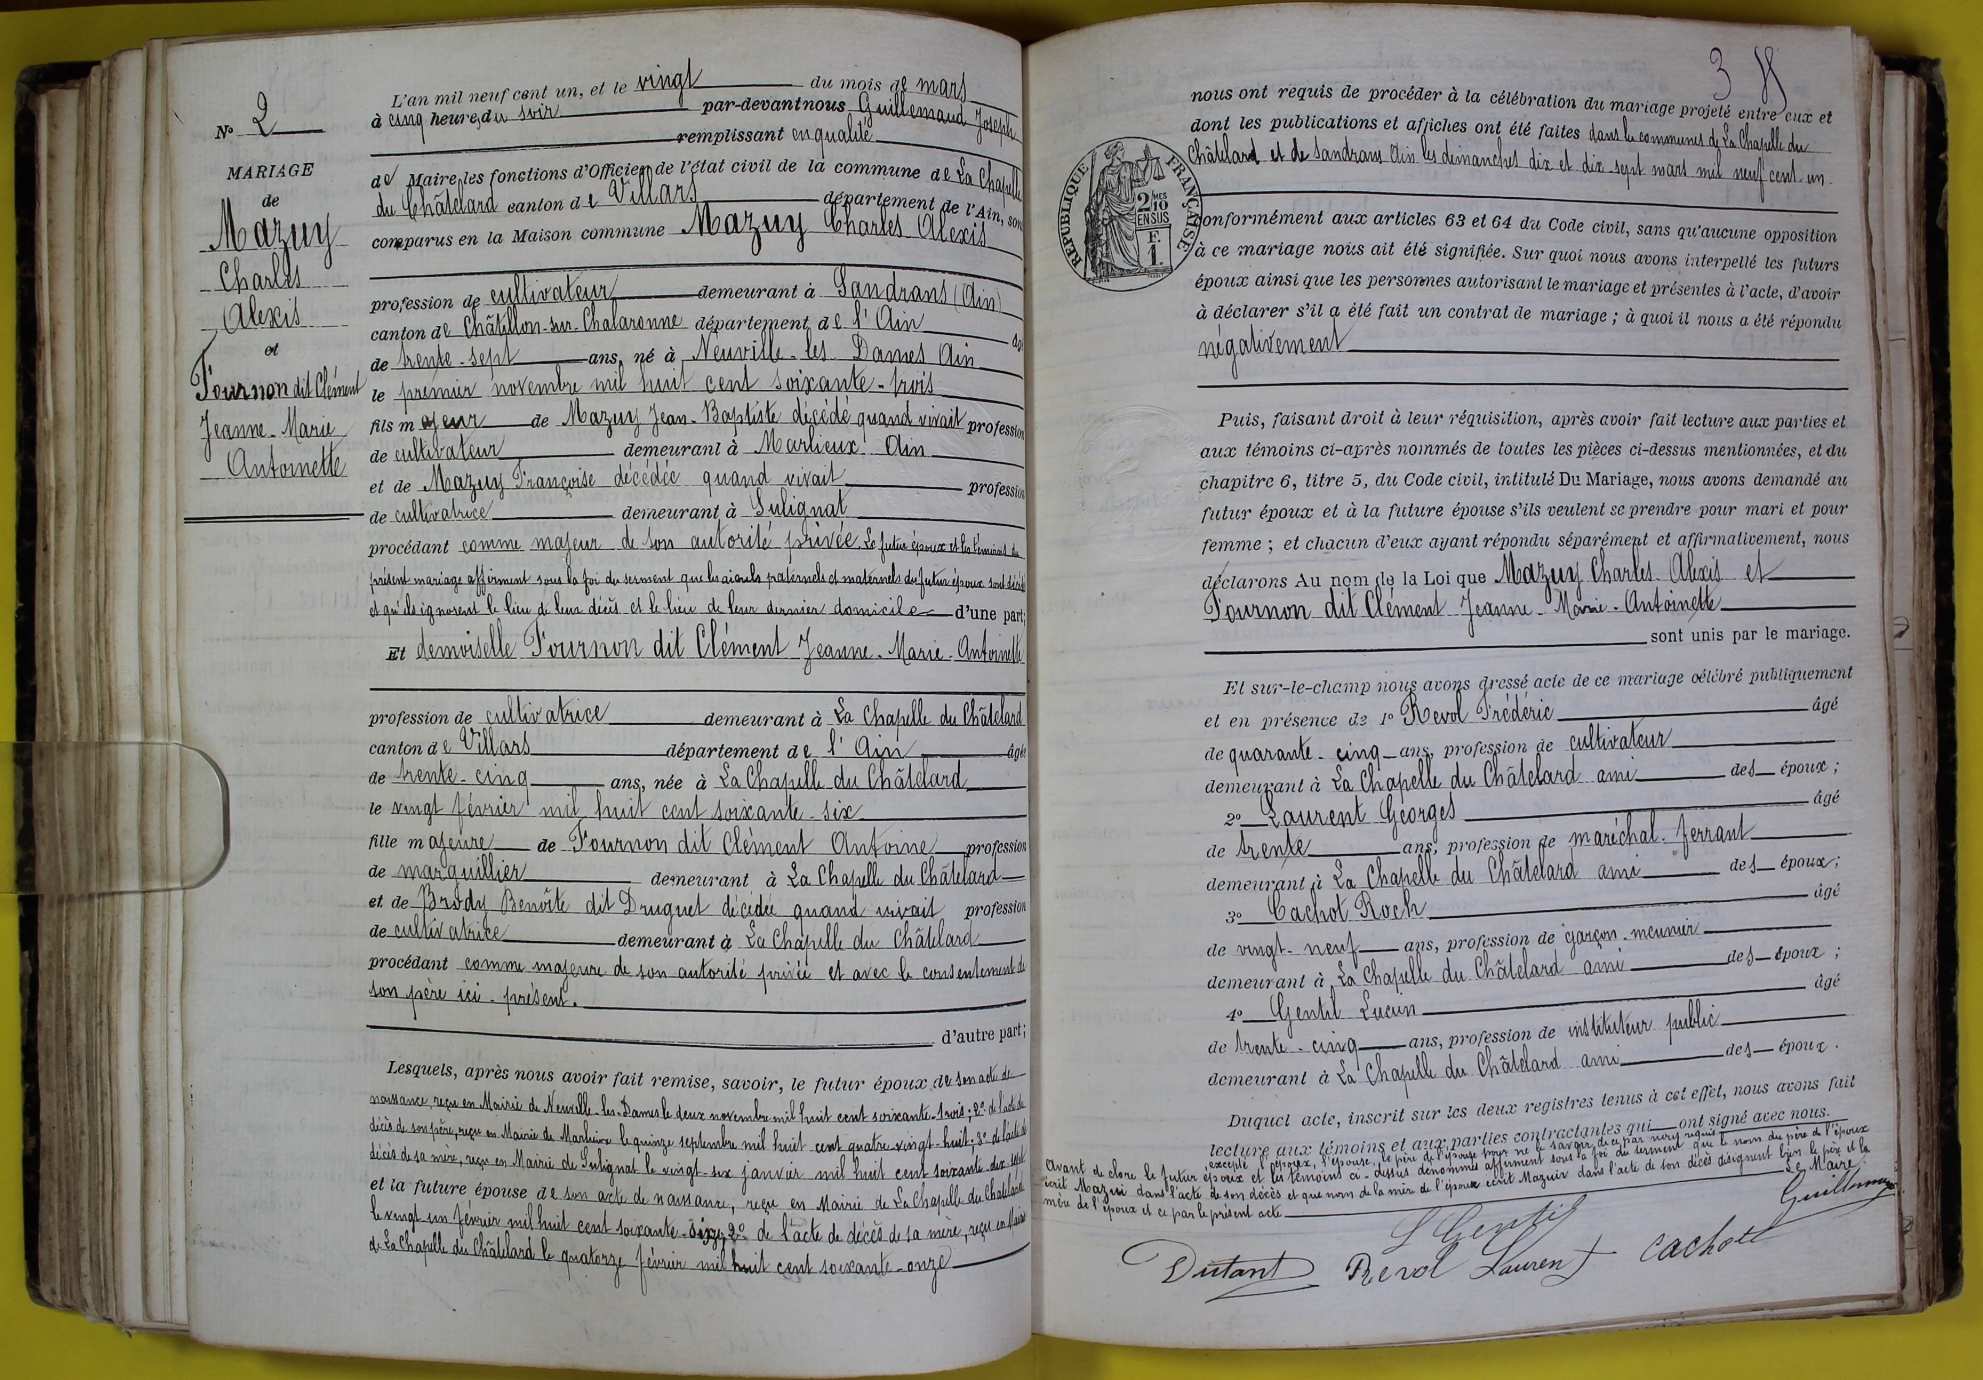 N° 2
MARIAGE
de
Mazuy
Charles
Alexis
et
Fournon dit Clément
Jeanne-Marie
Antoinette
L'an mil neuf cent un, et le vingt du mois de mars
à cinq heures du soir par-devant nous Guillemaud Joseph
remplissant en qualité
de Maire les fonctions d'Officier de l'état civil de la commune de La Chapelle
du Châtelard canton de Villars département de l'Ain, sont
comparus en la Maison commune Mazuy Charles Alexis
profession de cultivateur demeurant à Sandrans (Ain)
canton de Châtillon-sur-Chalaronne département de l'Ain âgé
de trente-sept ans, né à Neuville-les-Dames Ain
le premier novembre mil huit cent soixante-trois
fils majeur de Mazuy Jean-Baptiste décédé quand vivait profession
de cultivateur demeurant à Marlieux Ain
et de Mazuy Françoise décédée quand vivait profession
de cultivatrice demeurant à Sulignat
procédant comme majeur de son autorité privée. Le futur époux et les témoins du
présent mariage affirment sous la foi du serment que les aïeuls paternels et maternels du futur époux sont décédés
et qu'ils ignorent le lieu de leur décès et le lieu de leur dernier domicile d'une part;
Et demoiselle Fournon dit Clément Jeanne-Marie-Antoinette
profession de cultivatrice demeurant à La Chapelle du Châtelard
canton de Villars département de l'Ain âgée
de trente-cinq ans, née à La Chapelle du Châtelard
le vingt février mil huit cent soixante-six
fille majeure de Fournon dit Clément Antoine profession
de marguillier demeurant à La Chapelle du Châtelard
et de Brody Benoîte dit Druguet décédée quand vivait profession
de cultivatrice demeurant à La Chapelle du Châtelard
procédant comme majeure de son autorité privée et avec le consentement de
son père ici-présent.
d'autre part;
Lesquels, après nous avoir fait remise, savoir, le futur époux de son acte de
naissance, reçu en Mairie de Neuville-les-Dames le deux novembre mil huit cent soixante-trois; 2° de l'acte de
décès de son père, reçu en Mairie de Marlieux le quinze septembre mil huit cent quatre-vingt-huit; 3° de l'acte de
décès de sa mère, reçu en Mairie de Sulignat le vingt-six janvier mil huit cent soixante-dix-sept
et la future épouse de son acte de naissance, reçu en Mairie de La Chapelle du Châtelard
le vingt-un février mil huit cent soixante-six, 2° de l'acte de décès de sa mère, reçu en Mairie
de La Chapelle du Châtelard le quatorze février mil huit cent soixante-onze
3
nous ont requis de procéder à la célébration du mariage projeté entre eux et
dont les publications et affiches ont été faites dans les communes de La Chapelle du
Châtelard et de Sandrans Ain les dimanches dix et dix-sept mars mil neuf cent un
RÉPUBLIQUE FRANÇAISE
2/10 MES
EN SUS
F.
1.
conformément aux articles 63 et 64 du Code civil, sans qu'aucune opposition
à ce mariage nous ait été signifiée. Sur quoi nous avons interpellé les futurs
époux ainsi que les personnes autorisant le mariage et présentes à l'acte, d'avoir
à déclarer s'il a été fait un contrat de mariage; à quoi il nous a été répondu
négativement
Puis, faisant droit à leur réquisition, après avoir fait lecture aux parties et
aux témoins ci-après nommés de toutes les pièces ci-dessus mentionnées, et du
chapitre 6, titre 5, du Code civil, intitulé Du Mariage, nous avons demandé au
futur époux et à la future épouse s'ils veulent se prendre pour mari et pour
femme; et chacun d'eux ayant répondu séparément et affirmativement, nous
déclarons Au nom de la Loi que Mazuy Charles-Alexis et
Fournon dit Clément Jeanne-Marie-Antoinette
sont unis par le mariage.
Et sur-le-champ nous avons dressé acte de ce mariage célébré publiquement
et en présence de 1° Revol Frédéric âgé
de quarante-cinq ans, profession de cultivateur
demeurant à La Chapelle du Châtelard ami des époux;
2° Laurent Georges âgé
de trente ans, profession de maréchal-ferrant
demeurant à La Chapelle du Châtelard ami des époux;
3° Cachot Roch âgé
de vingt-neuf ans, profession de garçon-meunier
demeurant à La Chapelle du Châtelard ami des époux;
4° Gentil Lucien âgé
de trente-cinq ans, profession de instituteur public
demeurant à La Chapelle du Châtelard ami des époux.
Duquel acte, inscrit sur les deux registres tenus à cet effet, nous avons fait
lecture aux témoins et aux parties contractantes qui ont signé avec nous.
excepté l'époux, l'épouse, le père de l'épouse pour ne le savoir, de ce par nous requis
Avant de clore le futur époux et les témoins ci-dessus dénommés affirment sous la foi du serment que le nom du père de l'époux
écrit Mazui dans l'acte de son décès et que nom de la mère de l'époux écrit Mazuir dans l'acte de son décès désignent bien le père et la
mère de l'époux et ce par le présent acte
Le Maire
Guillemaud
L Gentil
Dutant Revol Laurent Cachott